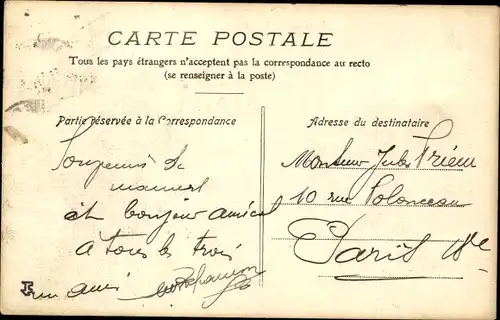 CARTE POSTALE
Tous les pays étrangers n'acceptent pas la correspondance au recto
(se renseigner à la poste)
Partie réservée à la Correspondance
et bonjour amical
à tous les trois
un ami
Adresse du destinataire
Monsieur Jules Prieur
10 rue Polonceau
Paris 18e